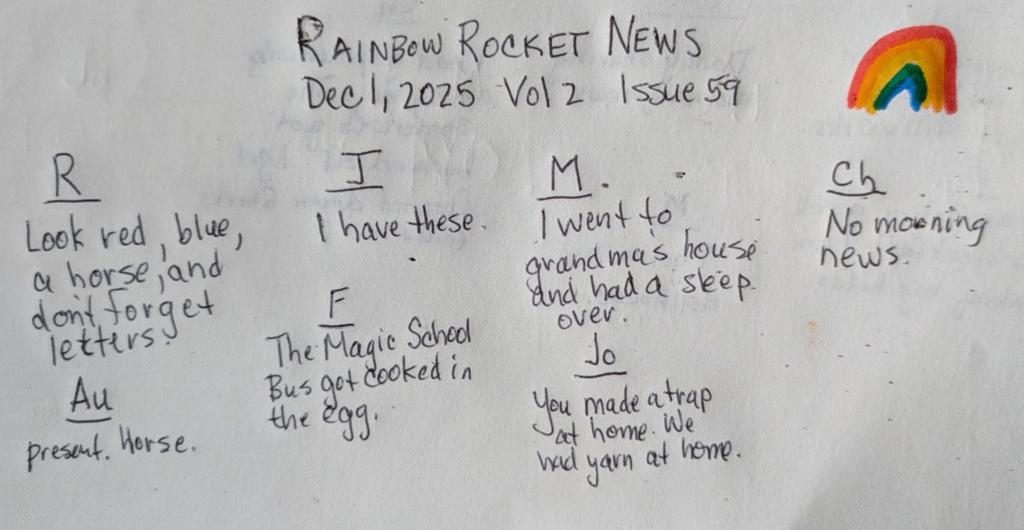 RAINBOW ROCKET NEWS
Dec 1, 2025 Vol 2 Issue 59
R
Look red, blue,
a horse, and
don't forget
letters.
Au
present. Horse.
J
I have these.
F
The Magic School
Bus got cooked in
the egg.
M
I went to
grandmas house
and had a sleep
over.
Jo
You made a trap
at home. We
had yarn at home.
Ch
No morning
news.